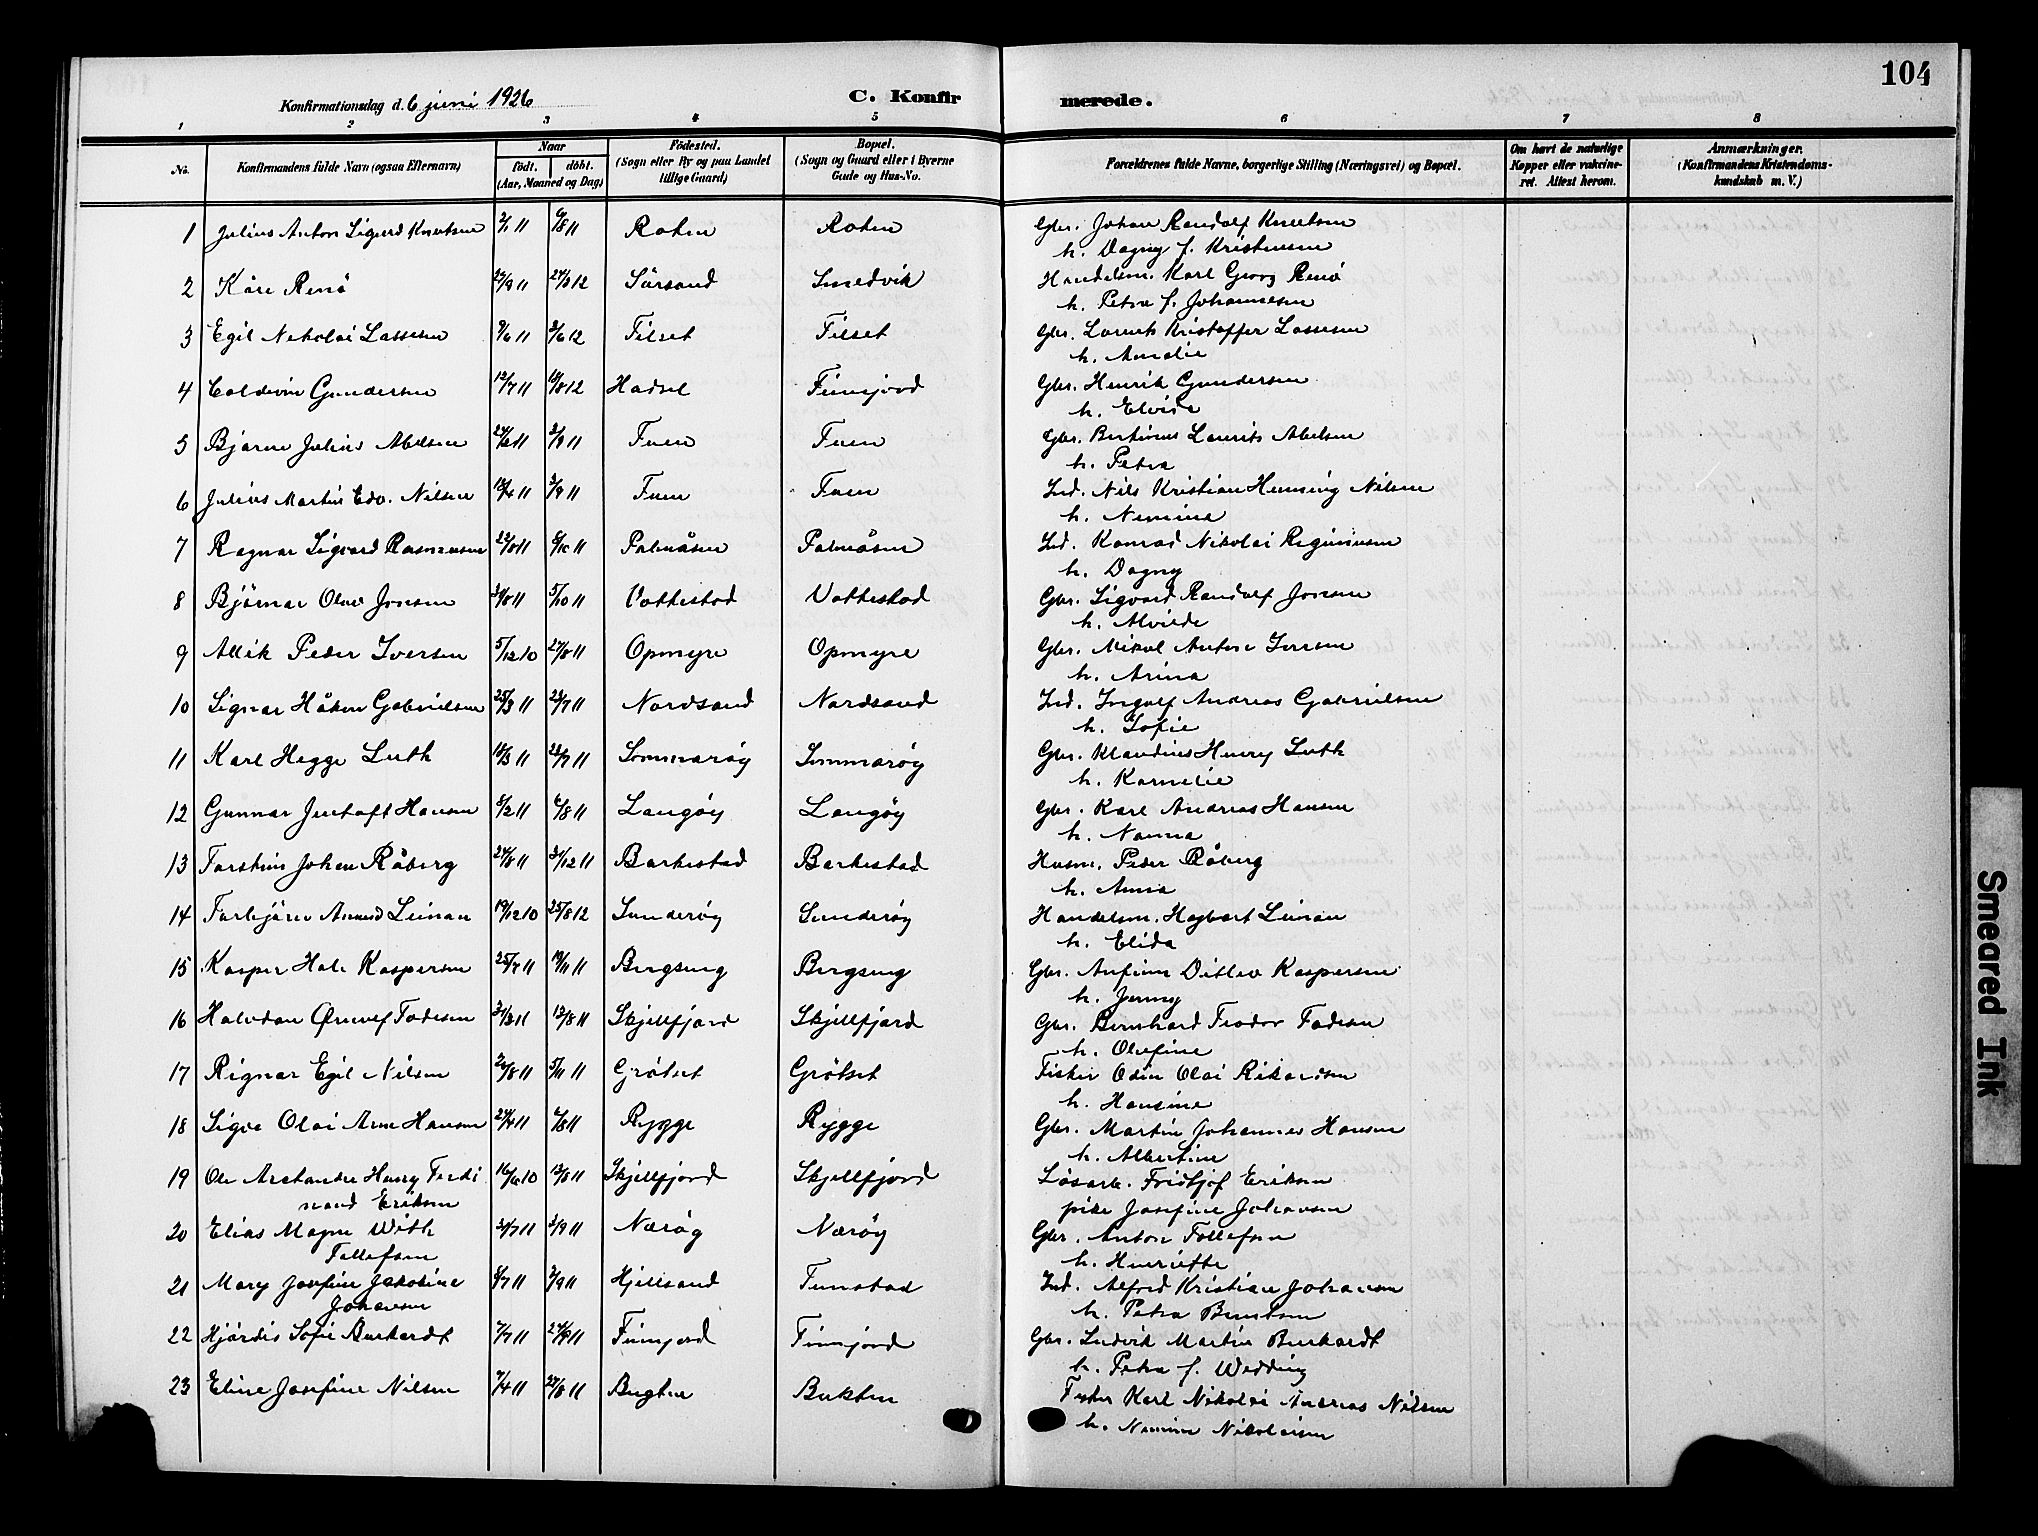 104
Konfirmationsdag d. 6 juni 1926
C. Konfirmerede.
1 2 3 4 5 6 7 8
No. Konfirmandens fulde Navn (ogsaa Efternavn) Naar født. døbt. (Aar, Maaned og Dag) Fødested. (Sogn eller By og paa Landet tillige Gaard) Bopæl. (Sogn og Gaard eller i Byerne Gade og Hus-No. Forældrenes fulde Navne, borgerlige Stilling (Næringsvei) og Bopæl. Om havt de naturlige Kopper eller vaccineret. Attest herom. Anmærkninger. (Konfirmandens Kristendomskundskab m. V.)
1 Julius Anton Sigurd Knutsen 2/1 11 6/8 11 Roten Roten Gbr. Johan Randolf Knutsen
h. Dagny f. Kristensen
2 Kåre Renö 27/9 11 Sörsand Smedvik Handelsm. Karl Georg Renö
h. Petra f. Johannesen
3 Egil Nikolai Lassesen 9/6 11 2/6 12 Tilset Tilset Gbr. Laurits Kristoffer Lassesen
h. Amalie
4 Baldevin Gundersen 12/7 11 18/8 12 Hadsel Finnsjord Gbr. Henrik Gundersen
h. Elvise
5 Bjarne Julius Abelsen 3/9 11 Tuen Tuen Gbr. Bertinius Laurits Abelsen
h. Petra
6 Julius Martin Edv. Nilsen 18/4 11 3/9 11 Tuen Tuen Ind. Nils Kristian Henning Nilsen
h. Nemina
7 Ragnar Sigvard Rasmussen 22/8 11 6/10 11 Palmåsen Palmåsen Ind. Konrad Nikolai
h. Dagny
8 Björnar Olav Jonsen 5/10 11 Vottestad Vottestad Gbr. Sigvard Randolf Jonsen
h. Alvilde
9 Alik Peder Iversen 5/12 10 27/8 11 Opmyre Opmyre Gbr. Nikol Anton Iversen
h. Arina
10 Signar Håkon Gabrielsen 25/3 11 23/7 11 Nordsand Nordsand Ind. Ingolf Andreas Gabrielsen
h. Sofie
11 Karl Hegge Luth 18/3 11 23/7 11 Sommarøy Sommarøy Gbr. Klaudius Henry Luth
h. Kornelie
12 Gunnar Hansen 5/2 11 6/8 11 Langöy Langöy Gbr. Karl Andreas Hansen
h. Nanna
13 Torstein Johan Råberg 24/8 11 31/12 11 Barkestad Barkestad Husm. Peder Råberg
h. Anna
14 Torbjörn Amund Leinan 19/12 10 25/8 12 Sunderöy Sunderöy Handelsm. Hagbart Leinan
h. Elida
15 Kasper Hole Kaspersen 25/7 11 19/11 11 Bergseng Bergseng Gbr. Anfinn Ditlev Kaspersen
h. Jenny
16 Halvdan Ørnulf Todesen 31/3 11 13/8 11 Skjellfjord Skjellfjord Gbr. Bernhard Teodor Todesen
h. Olufine
17 Rignar Egil Nilsen 20/8 11 5/11 11 Grötset Grötset Fisker Odin Olai Rikardsen
h. Hansine
18 Sigve Olai Arne Hansen 24/4 11 6/8 11 Rygge Rygge Gbr. Martin Johannes Hansen
h. Albertine
19 Ole Henry Ferdi 16/6 10 13/8 11 Skjellfjord Skjellfjord Løsarb. Fridtjof Eriksen
nand Eriksen pike Josefine Johansen
20 Elias Magne With 31/7 11 3/9 11 Nærøy Nærøy Gbr. Anton Tollefsen
Tollefsen h. Henriette
21 Mary Josefine Jakobine 8/7 11 3/9 11 Hjellsand Tunstad Ind. Alfred Kristian Johansen
Johansen h. Petra Berntsen
22 Hjördis Sofie Burkardt 7/7 11 24/9 11 Finnsjord Finnsjord Gbr. Ludvik Martin Burkardt
h. Petra f. Wedding
23 Eline Josefine Nilsen 7/4 11 27/8 11 Bugten Bukten Fisker Karl Nikolai Andreas Nilsen
h. Nikolaisen
Smeared Ink